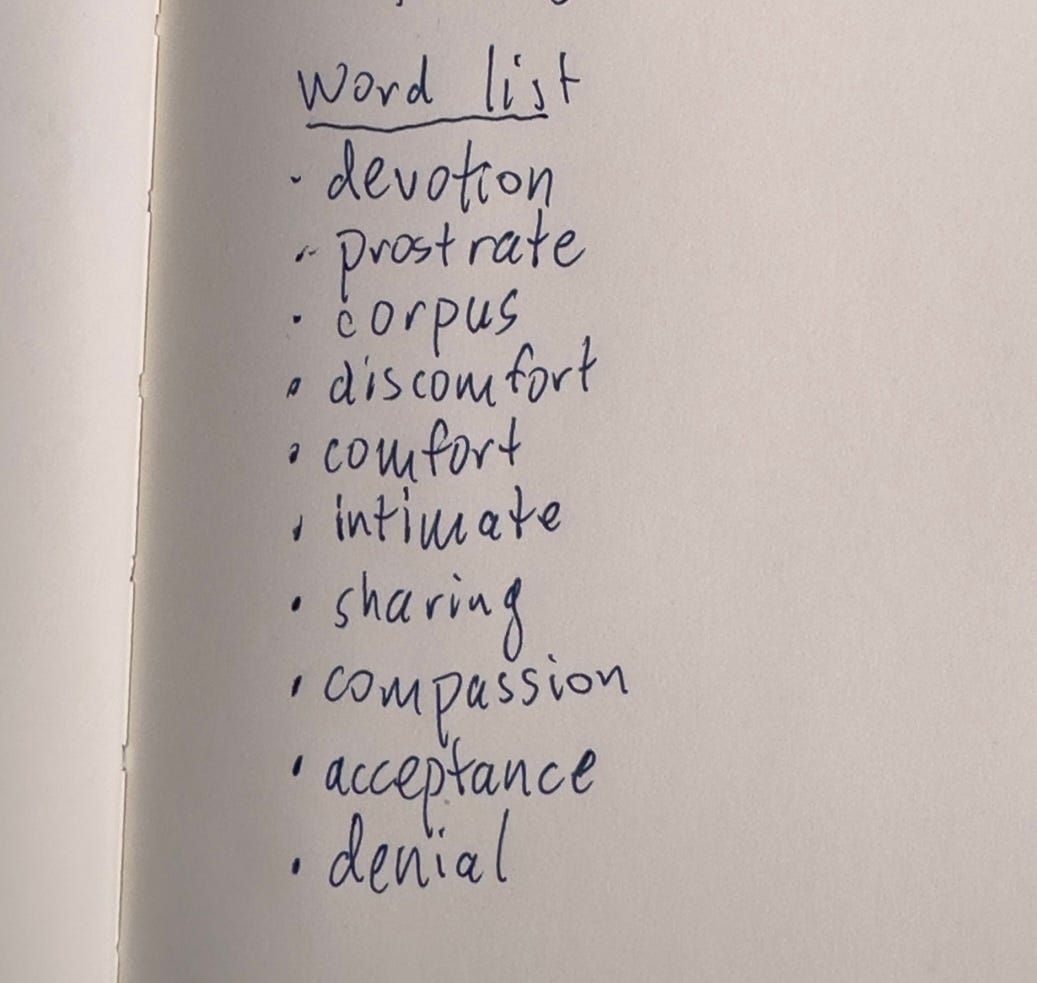 Word list
· devotion
· prostrate
· corpus
· discomfort
· comfort
· intimate
· sharing
· compassion
· acceptance
· denial